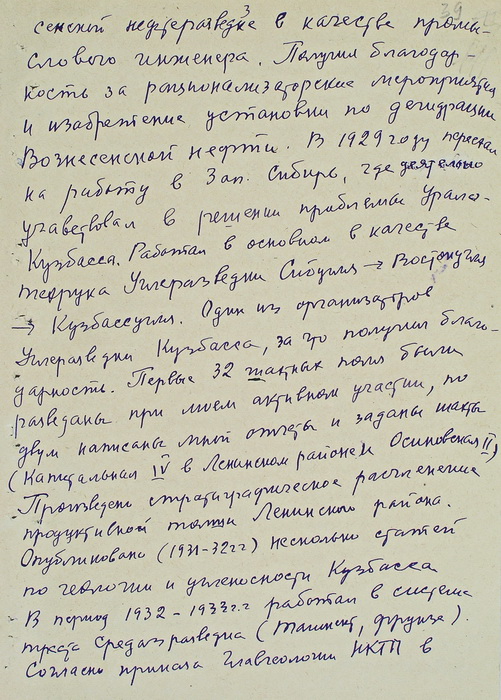 39
3
сенской нефтеразведке в качестве промы-
слового инженера. Получил благодар-
ность за рационализаторские мероприятия
и изобретение установки по дегидрации
Вознесенской нефти. В 1929 году переехал
на работу в Зап. Сибирь, где деятельно
участвовал в решении проблемы Урало-
Кузбасса. Работал в основном в качестве
техрука Углеразведки Сибугля → Востокугля
→ Кузбассугля. Один из организаторов
Углеразведки Кузбасса, за что получил благо-
дарность. Первые 32 шахтных поля были
разведаны при моем активном участии, по
двум написаны мной отчеты и заданы шахты
(Капитальная IV в Ленинском районе и Осиновская II)
Произведено стратиграфическое расчленение
продуктивной толщи Ленинского района.
Опубликовано (1931-32гг) несколько статей
по геологии и угленосности Кузбасса
В период 1932-1933г.г работал в системе
треста Средазразведка (Ташкент, Фрунзе).
Согласно приказа Главгеологии НКТП в